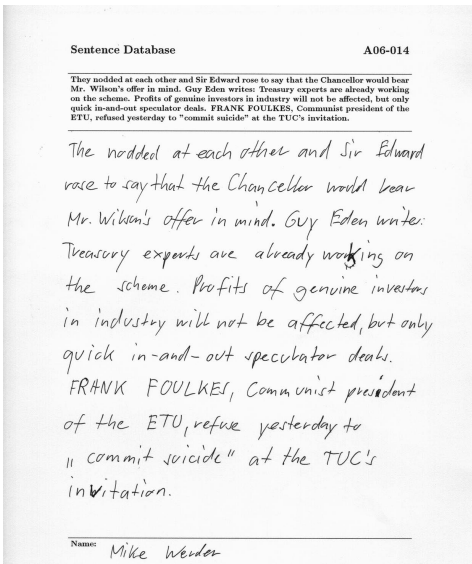 Sentence Database A06-014
They nodded at each other and Sir Edward rose to say that the Chancellor would bear
Mr. Wilson's offer in mind. Guy Eden writes: Treasury experts are already working
on the scheme. Profits of genuine investors in industry will not be affected, but only
quick in-and-out speculator deals. FRANK FOULKES, Communist president of the
ETU, refused yesterday to "commit suicide" at the TUC's invitation.
The nodded at each other and Sir Edward
rose to say that the Chancellor would bear
Mr. Wilson's offer in mind. Guy Eden writes:
Treasury experts are already working on
the scheme. Profits of genuine investors
in industry will not be affected, but only
quick in-and-out speculator deals.
FRANK FOULKES, Communist president
of the ETU, refuse yesterday to
„ commit suicide" at the TUC's
invitation.
Name: Mike Werder